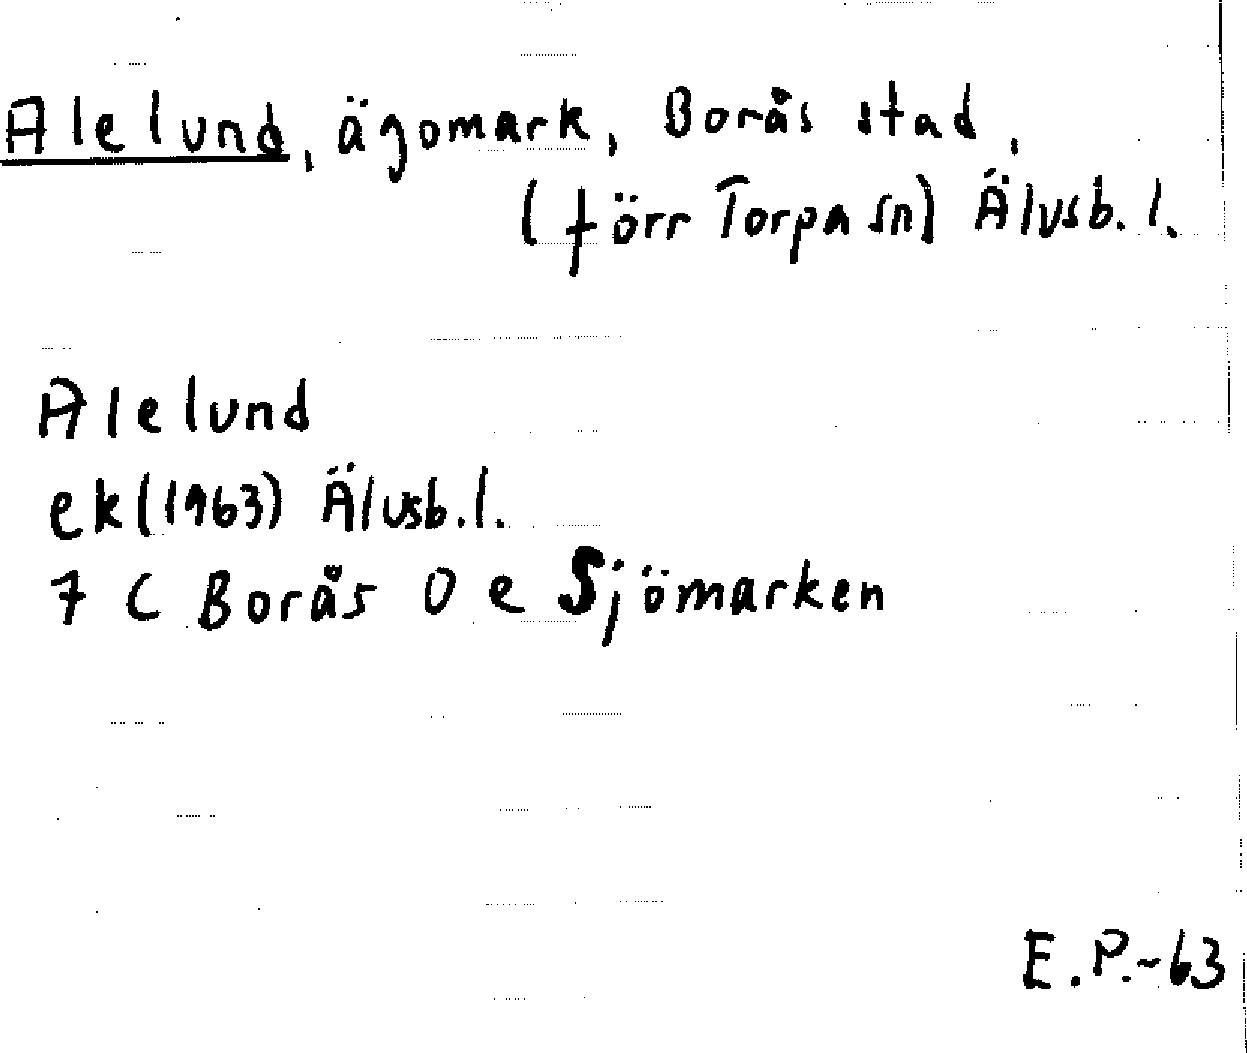 Alelund, ägomark, Borås stad,
(förr Torpa sn) Älvsb. l.
Alelund
ek (1963) Älvsb. l.
7 C Borås 0 e Sjömarken
E.P.-63